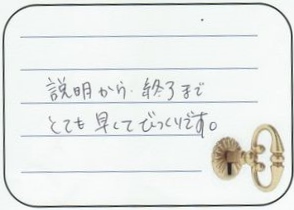 説明から.終了まで
とても早くてびっくりです。